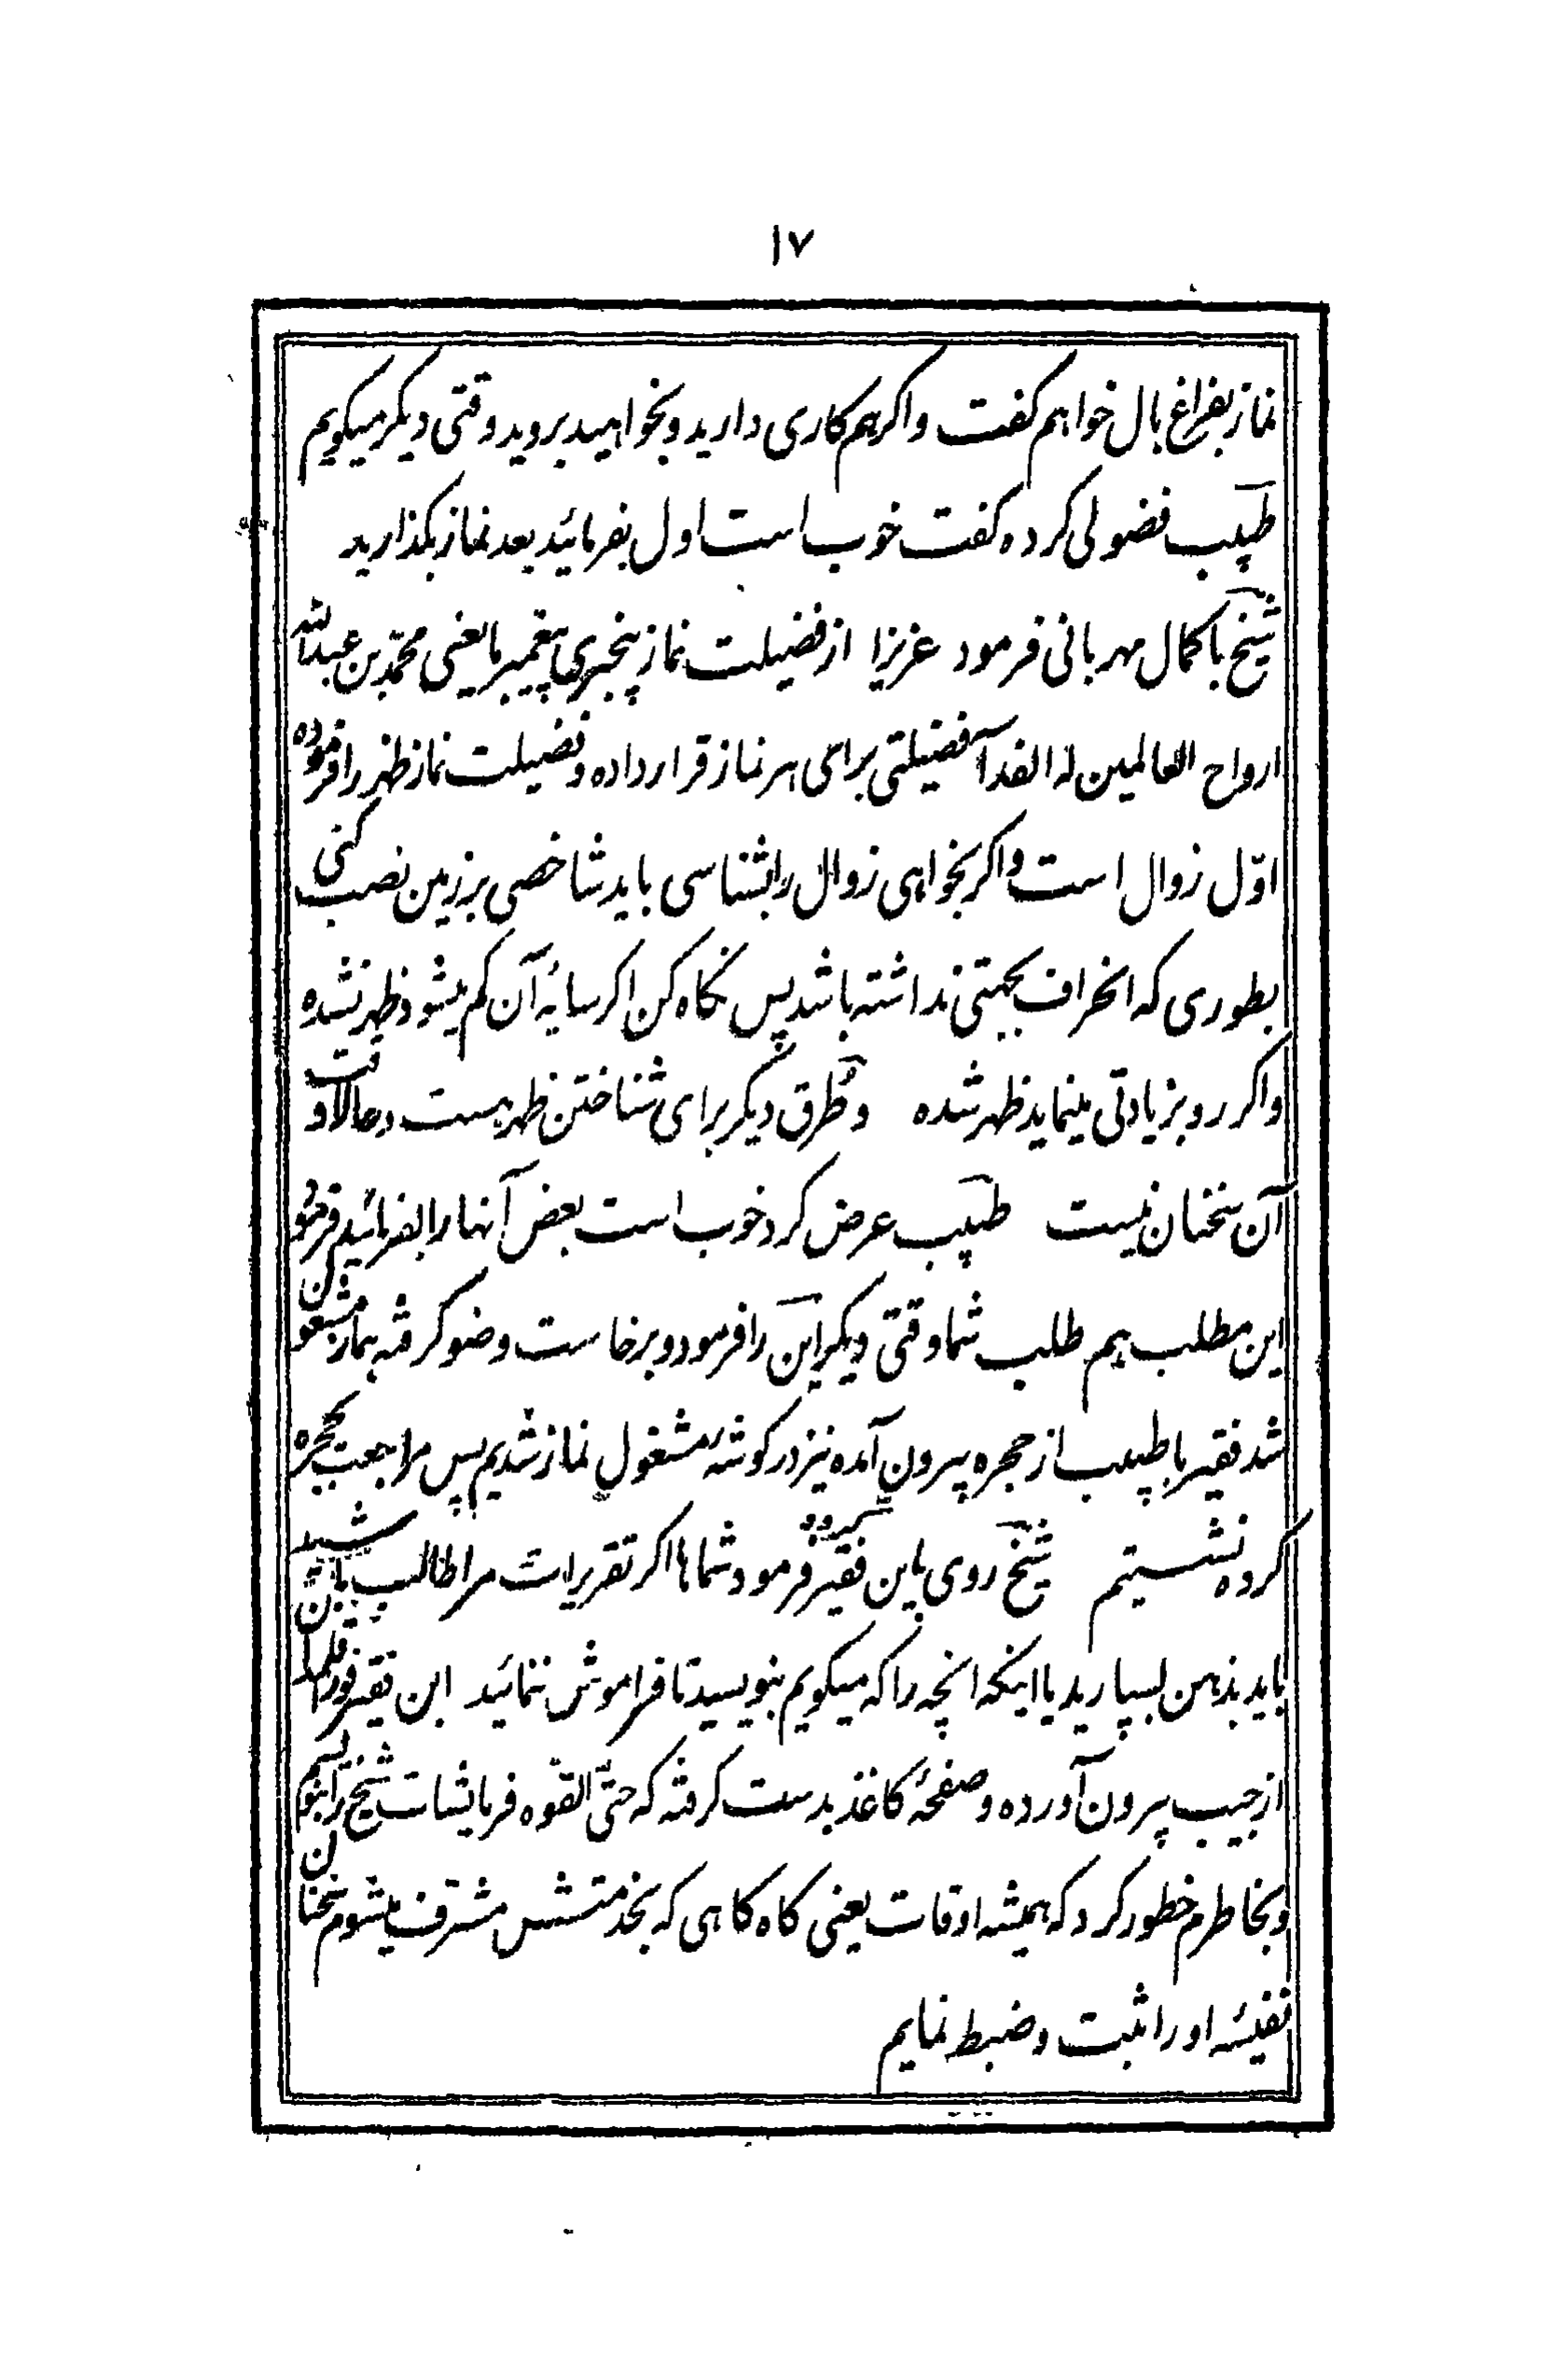 ۱۷
نماز بفراغ بال خواهم کفت واکرهم کاری دارید ونخواهید بروید وقتی دیکر میکویم
طبیب فضولی کرده کفت خوب است اول بفرمائید بعد نماز بکذارید
شیخ با کمال مهربانی فرمود عزیزا از فضیلت نماز بیخبری پیغمبر ما یعنی محمّد بن عبدالله
ارواح العالمین له الفدآ فضیلتی برای هر نماز قرار داده و فضیلت نماز ظهر را فرموده
اوّل زوال است واکر بخواهی زوال را بشناسی باید شاخصی بر زمین نصب کنی
بطوری که انحراف بجهتی نداشته باشد پس نکاه کن اکر سایۀ آن کم میشود ظهر نشده
واکر رو بزیادتی مینماید ظهر شده وطُرق دیکر برای شناختن ظهر هست وحالا وقت
آن سخنان نیست طبیب عرض کرد خوب است بعض آنها را بفرمائید فرمود
این مطلب هم طلب شما وقتی دیکر این را فرمود و برخاست وضو کرفته بنماز مشغول
شد فقیر با طبیب از حجره بیرون آمده نیز در کوشۀ مشغول نماز شدیم پس مراجعت بحجره
کرده نشستیم شیخ روی باین فقیر کرده فرمود شماها اکر تقریرات مرا طالب باشید
باید بذهن بسپارید یا اینکه انچه را که میکویم بنویسید تا فراموش ننمائید این فقیر فوراً قلمدان
از جیب بیرون آورده و صفحۀ کاغذ بدست کرفته که حتّی القوّه فرمایشات شیخ را بنویسم
وبخاطرم خطور کرد که همیشه اوقات یعنی کاه کاهی که بخدمتش مشرّف میشوم سخنان
نفیسۀ او را ثبت وضبط نمایم